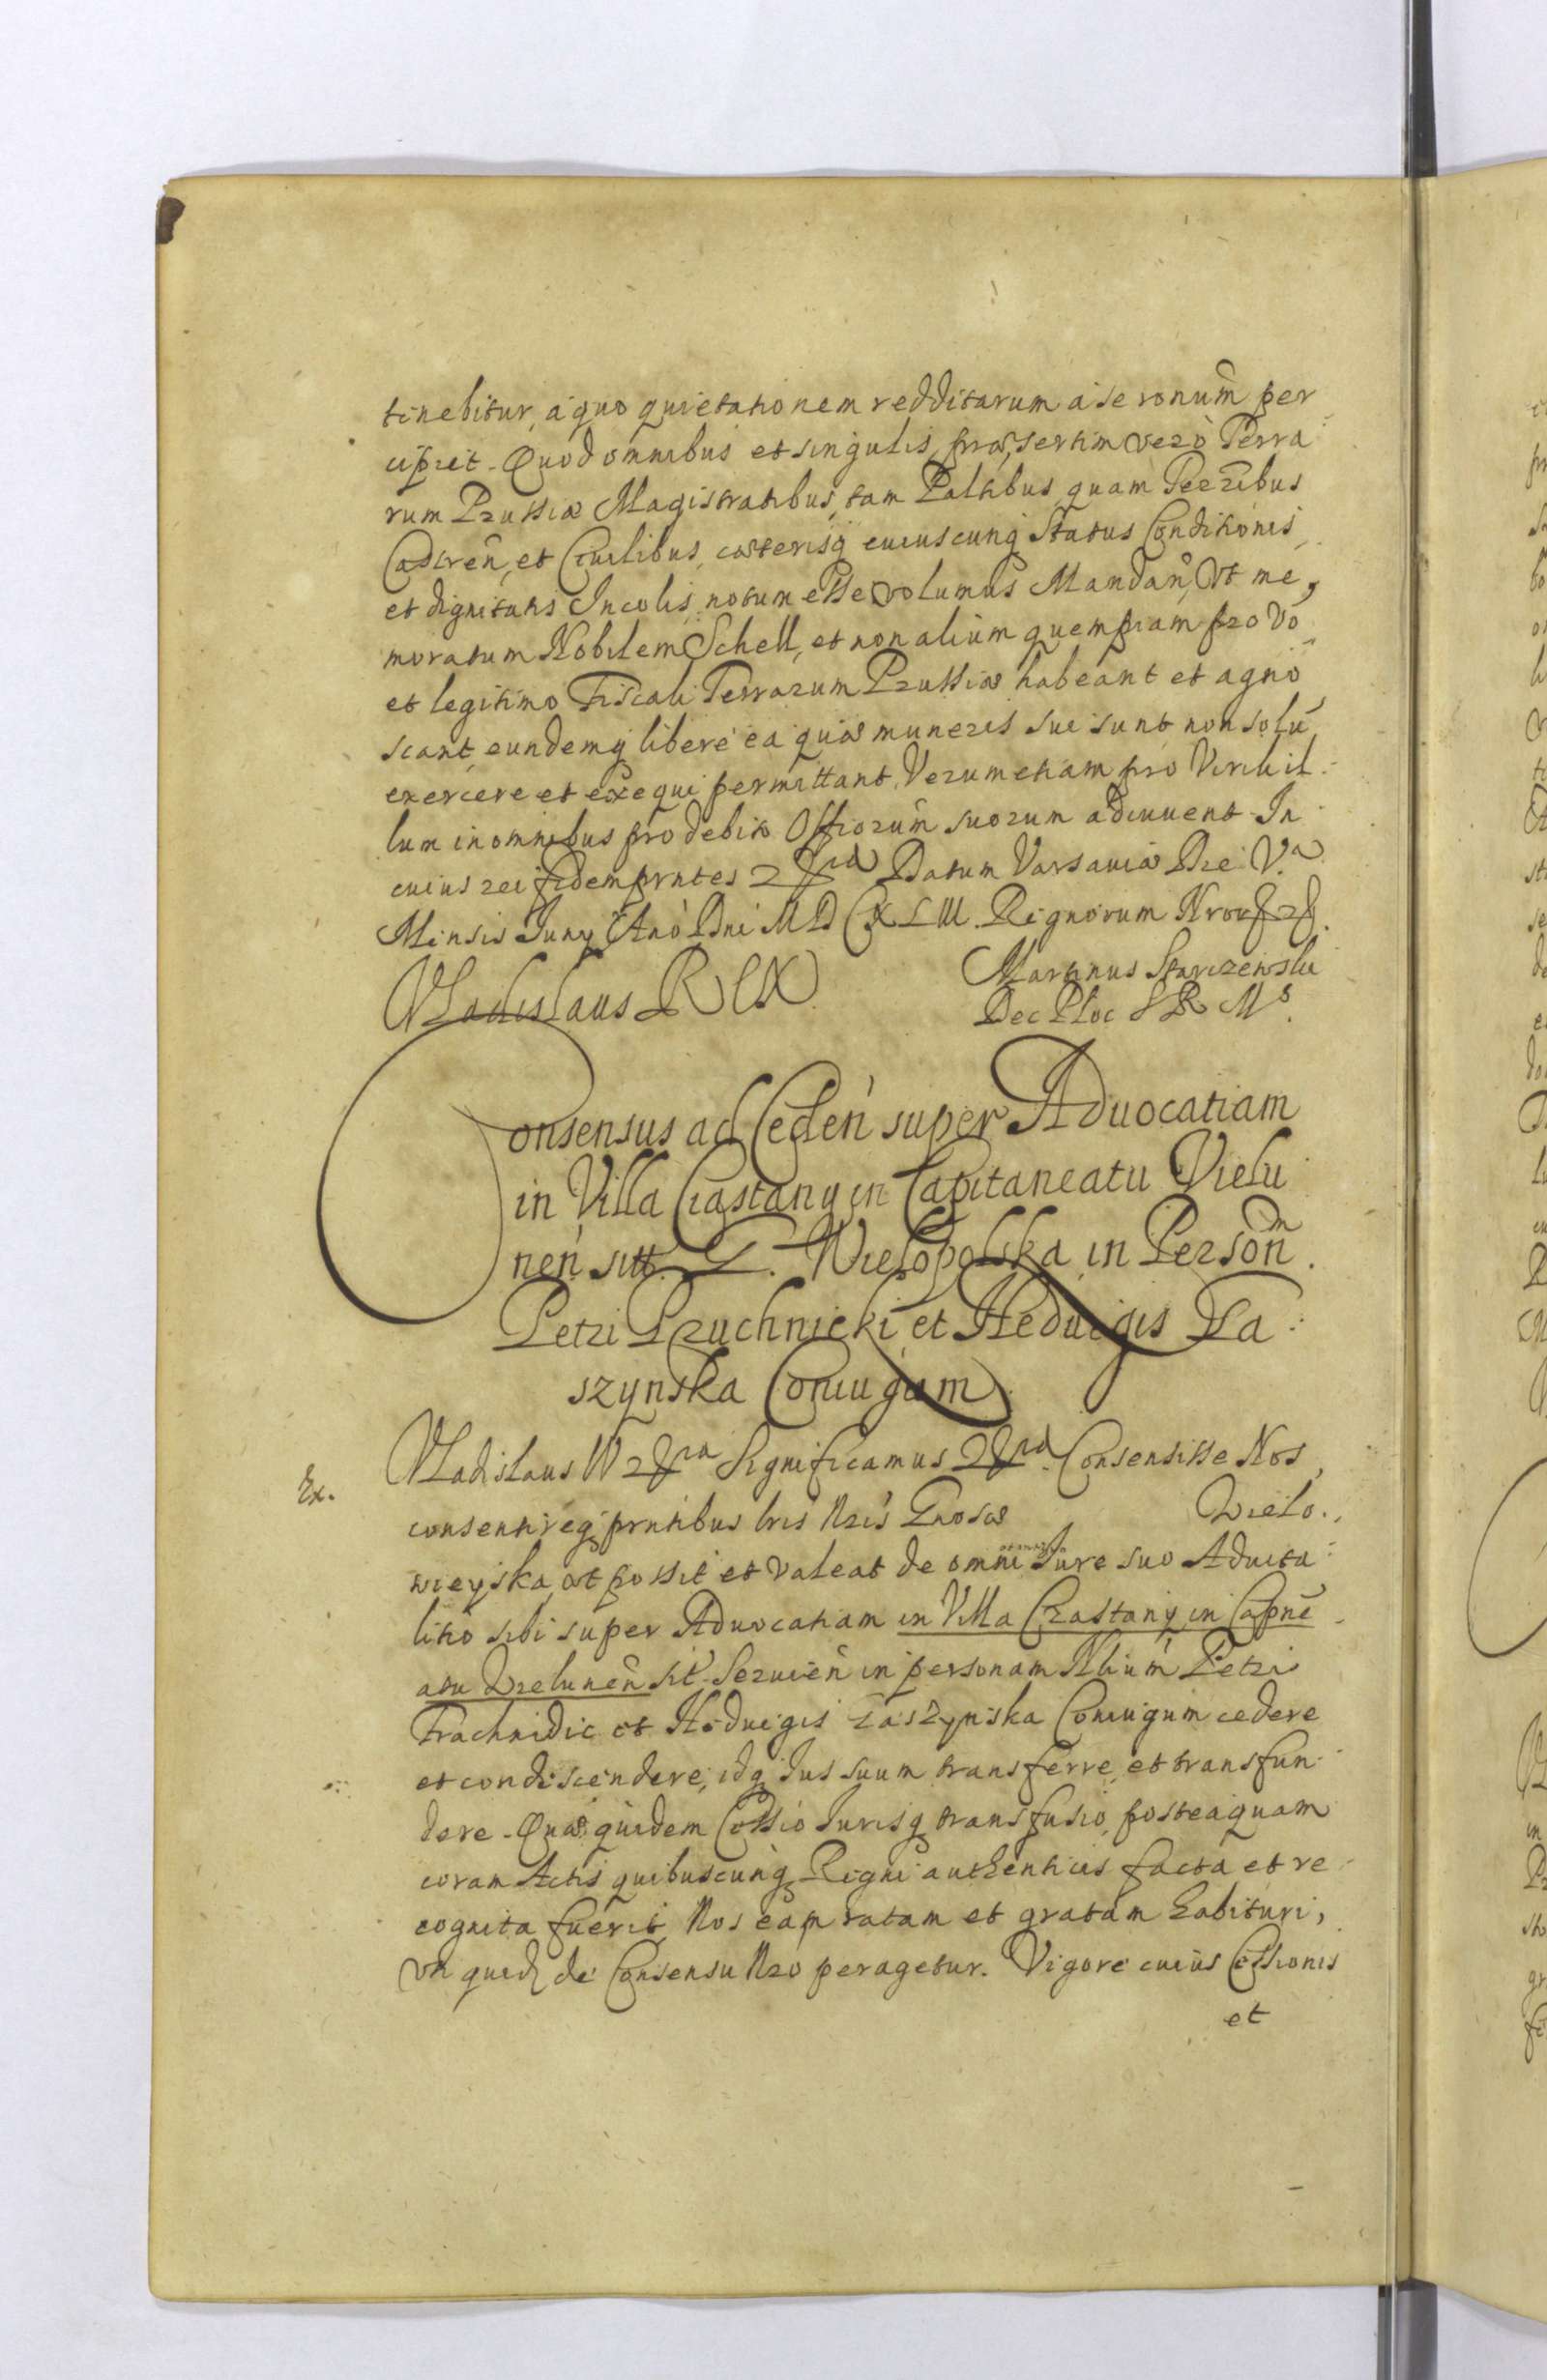 tinebitur, a quo quietationem redditarum a se ronum per
cipiet. Quod omnibus et singulis, præsertim vero Terra
rum Prussiæ Magistratibus, tam Paltibus quam Terribus
Castren, et Civilibus, cæterisq cuiuscunq Status Conditionis,
et dignitatis Incolis notum esse volumus Mandan, Ut me,
moratum Nobilem Schell, et non alium quempiam pro vo
et legitimo Fiscali Terrarum Prussiæ habeant et agno
scant, eundemq libere ea quæ muneris sui sunt non solu
exercere et exequi permittant. Verum etiam pro Virili il
lum in omnibus pro debito Offiorum suorum adiuvent. In
cuius rei fidem prntes Datum Varsaviæ Die V.a
Mensis Juny Ano Dni MDCXLIII. Regnorum Nror
Vladislaus REX
Martinus Starczewski
Dec Ploc S R Ms.
Consensus ad Ceden super Advocatiam
in Villa Ciastany in Capitaneatu Vielu
nen sitt. G. Wielopolska in Person.
Petri Pruchnicki et Heduigis Ta
szynska Coniugum
Ex.
Vladislaus IV Significamus Consensisse Nos,
consentireq prntibus lris Nris Gnosæ Wielo.,
wieyska, ut possit et valeat de omni Jure suo Aduita
litio sibi super Advocatiam in Villa Czastany in Capne
atu Wielunen sit. Servien in personam Nlium Petri
Trachnidic et Heduigis Taszynska Coniugum cedere
et condescendere, idq Jus suum transferre et transfun
dere. Quæ quidem Cessio Jurisq transfusio, posteaquam
coram Actis quibuscunq Regni authenticis facta et re
cognita fuerit, Nos eam ratam et gratam habituri,
uti quidem de Consensu Nro peragetur. Vigore cuius Cessionis
et